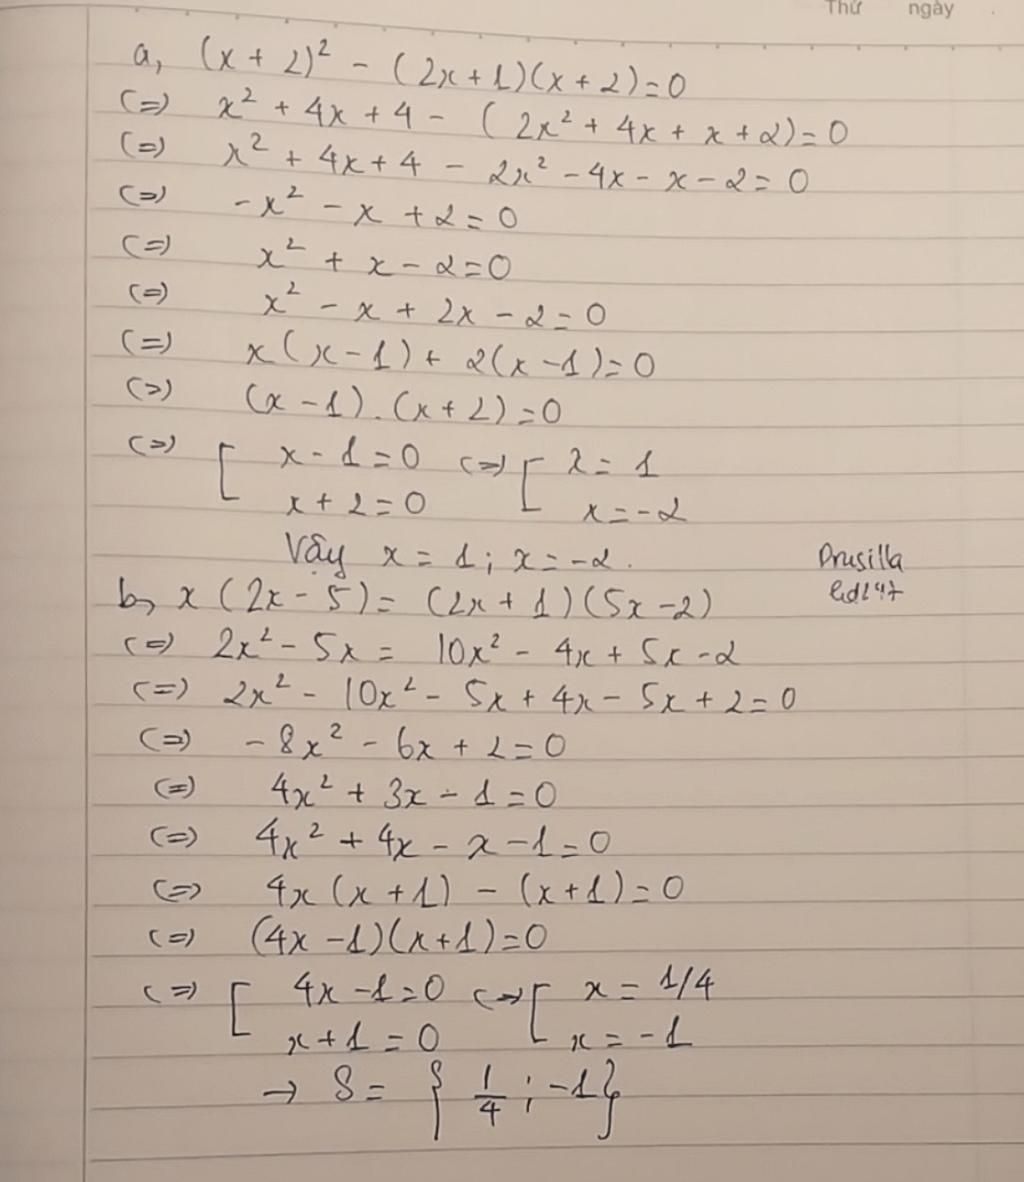 Thứ ngày
a, (x + 2)² - (2x + 1)(x + 2) = 0
(=) x² + 4x + 4 - (2x² + 4x + x + 2) = 0
(=) x² + 4x + 4 - 2x² - 4x - x - 2 = 0
(=) -x² - x + 2 = 0
(=) x² + x - 2 = 0
(=) x² - x + 2x - 2 = 0
(=) x(x - 1) + 2(x - 1) = 0
(=) (x - 1).(x + 2) = 0
(=) [ x - 1 = 0 (=) [ x = 1
x + 2 = 0 x = -2
Vậy x = 1; x = -2.
Drusilla
b, x(2x - 5) = (2x + 1)(5x - 2)
(=) 2x² - 5x = 10x² - 4x + 5x - 2
(=) 2x² - 10x² - 5x + 4x - 5x + 2 = 0
(=) -8x² - 6x + 2 = 0
(=) 4x² + 3x - 1 = 0
(=) 4x² + 4x - x - 1 = 0
(=) 4x(x + 1) - (x + 1) = 0
(=) (4x - 1)(x + 1) = 0
(=) [ 4x - 1 = 0 (=) [ x = 1/4
x + 1 = 0 x = -1
→ S = { 1/4 ; -1 }